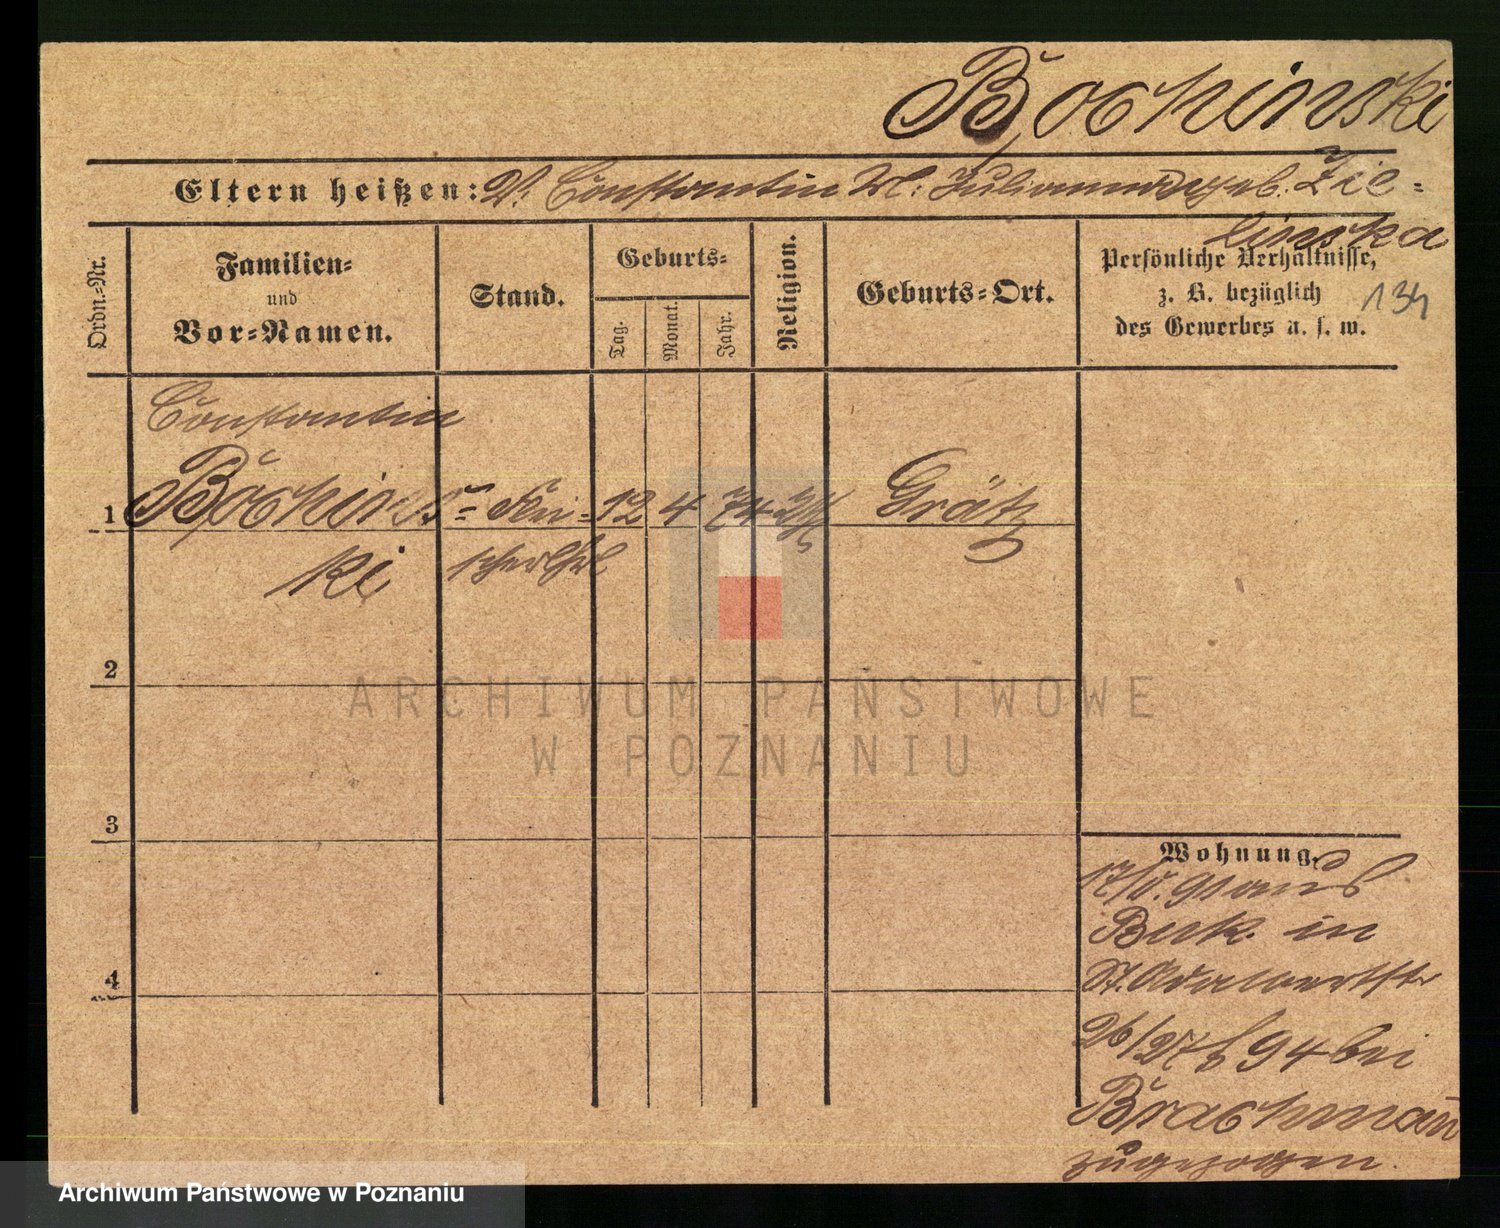 Bochinski
Eltern heißen: V. Constantin M: Julianna geb. Zie=
linska
Ordn.=Nr.
Familien=
und
Vor=Namen.
Stand.
Geburts=
Tag.
Monat.
Jahr.
Religion.
Geburts=Ort.
Persönliche Verhältnisse,
z. B. bezüglich
des Gewerbes u. s. w.
134
Constantin
1 Bochins=
ki
Flei=
scherlehrl
12 4 74
Grätz
2
3
4
Wohnung.
17/5. 91 aus
Buk. in
St. Adalbertstr
26/27 94 bei
Brachmann
zugezogen.
ARCHIWUM PAŃSTWOWE
W POZNANIU
Archiwum Państwowe w Poznaniu